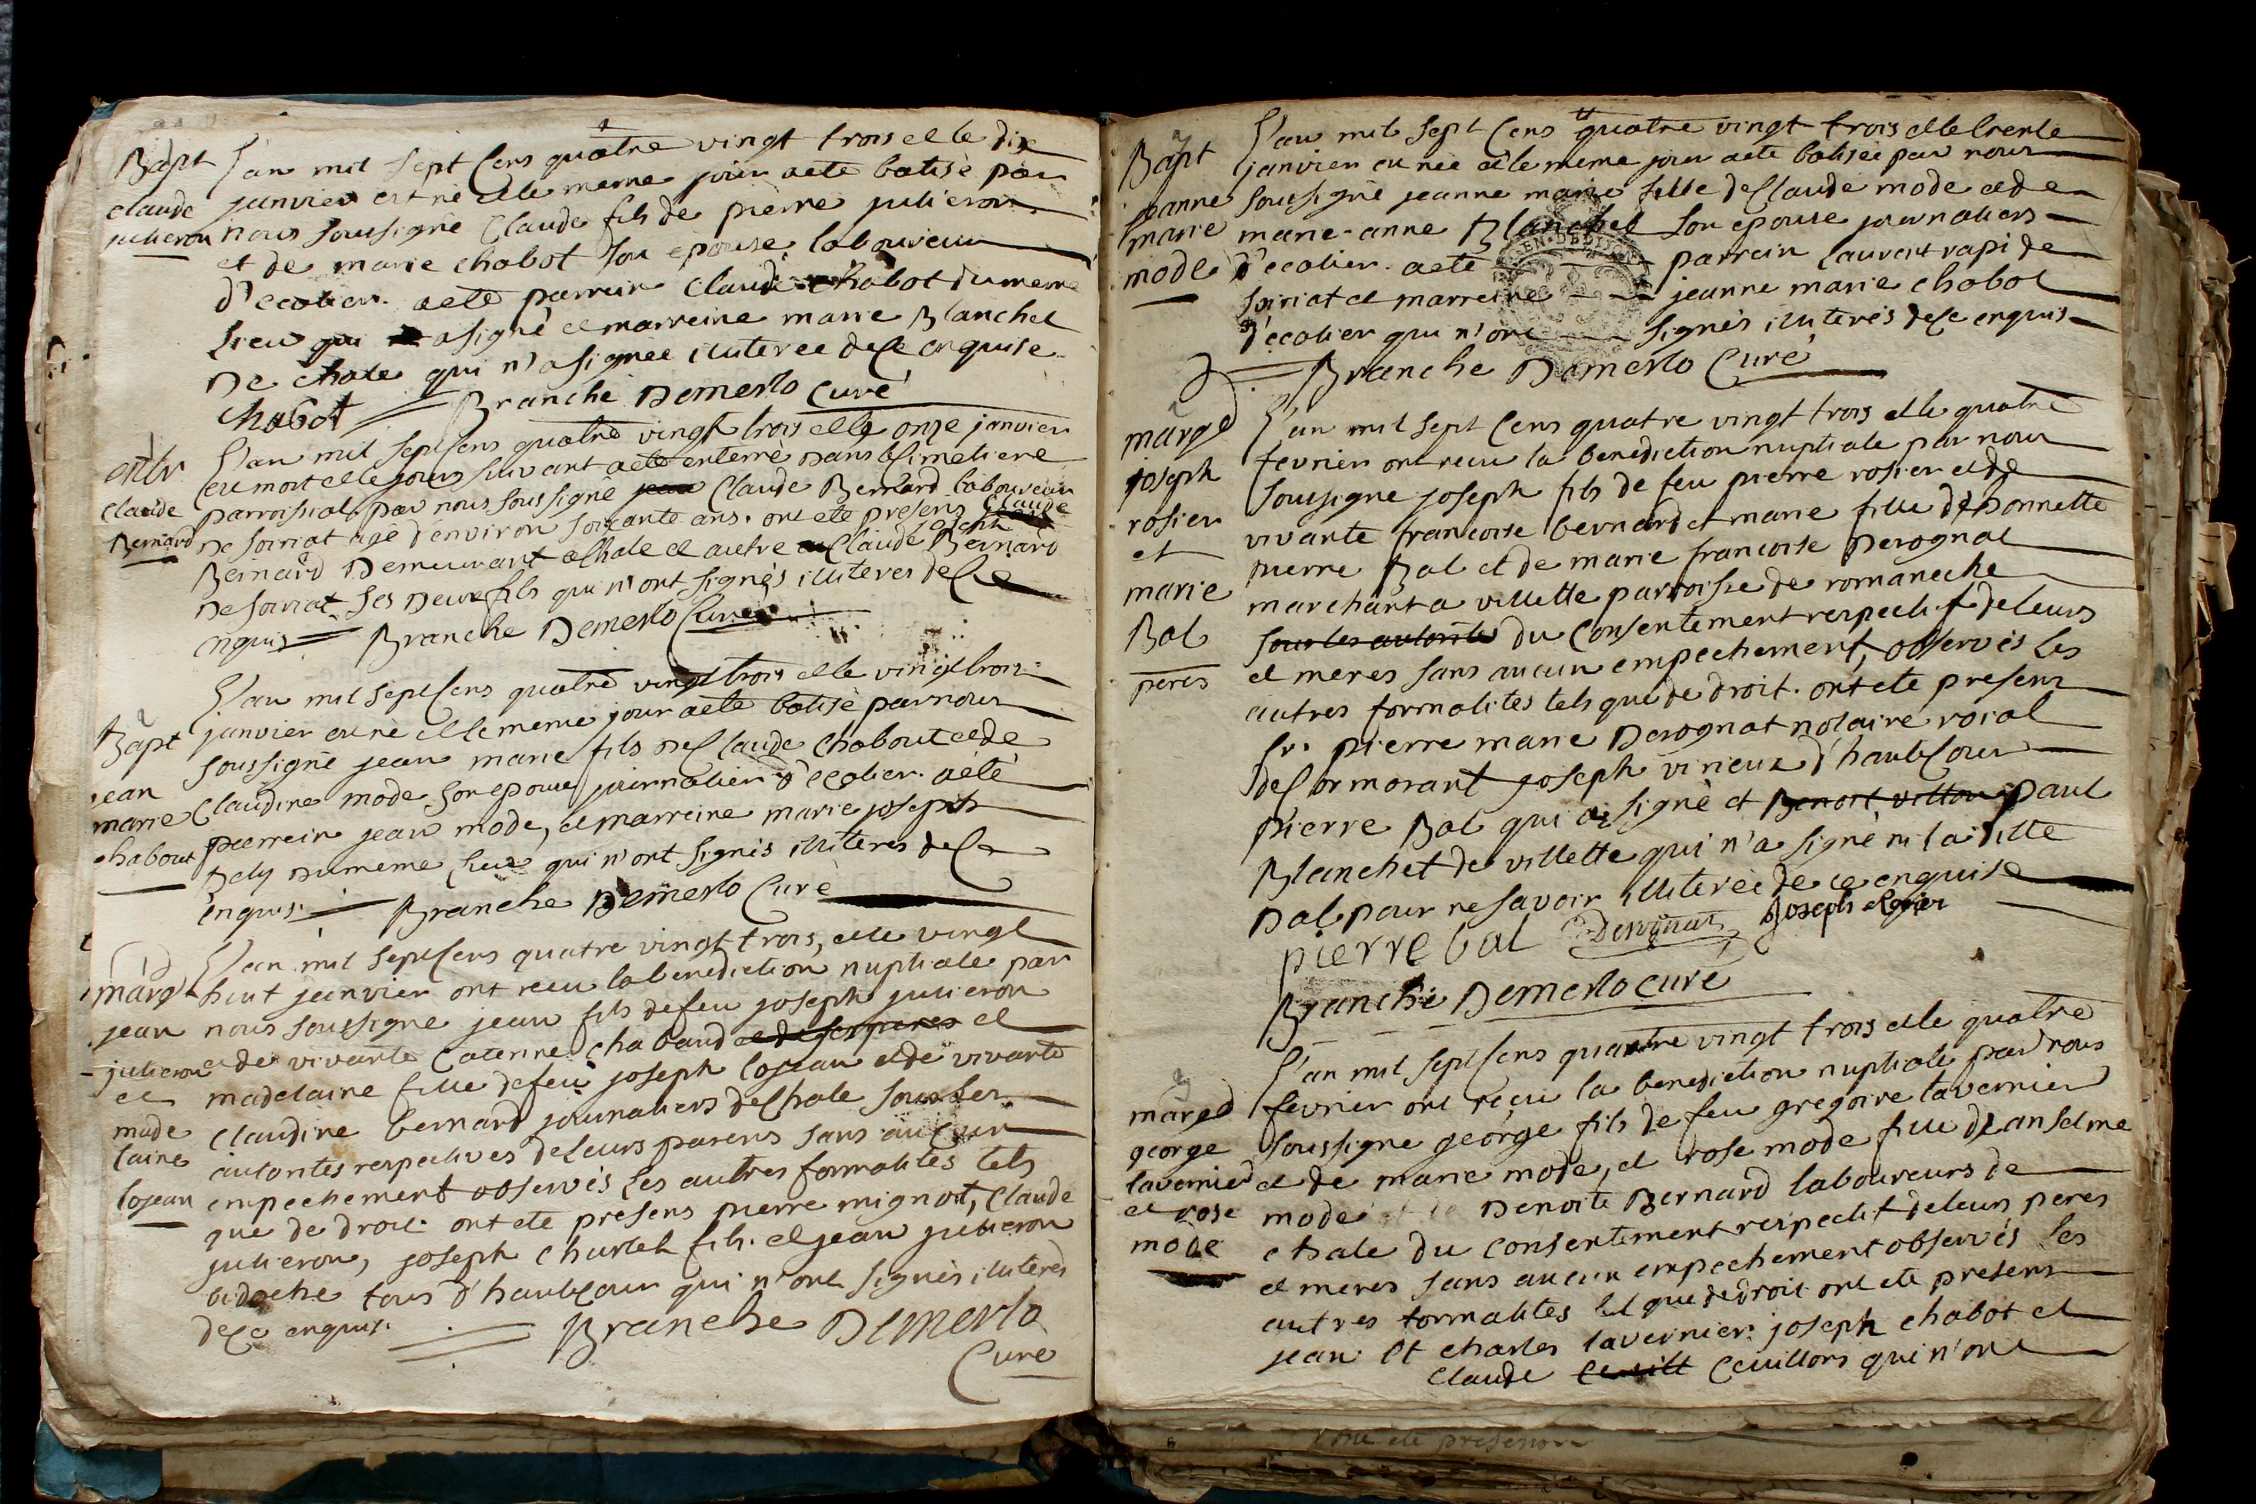 Bapt
claude
julieron
L'an mil sept cens quatre vingt trois et le dix
janvier est né et le meme jour a eté batisé par
nous soussigné Claude fils de pierre julieron
et de marie chabot son epouse laboureur
d'ecolier. a eté parrein Claude chabot du meme
lieu qui a signé et marreine marie Blanchet
De chale qui n'a signée illiterée de ce enquise
chabot Branche Demerlo curé
entr
claude
Bernard
L'an mil sept cens quatre vingt trois et le onze janvier
est mort et le jour suivant a eté enterré dans le cimetiere
parroissial par nous soussigné jean Claude Bernard laboureur
De soiriat agé d'environ soixante ans. ont eté presens Claude
Bernard Demeurant a chale et autre Claude joseph Bernard
De soiriat ses Deux fils qui n'ont signés illiterés de ce
enquis Branche Demerlo Curé
Bapt
jean
marie
chabout
L'an mil sept cens quatre vingt trois et le vingt trois
janvier est né et le meme jour a eté batisé par nous
soussigné jean marie fils de Claude chabout et de
Claudine mode son epouse journalier d'ecolier. a eté
parrein jean mode, et marreine marie joseph
Bely du meme lieu qui n'ont signés illiterés de ce
enquis. Branche Demerlo Curé
marg
jean
julieron
et
made
laine
lojean
L'an mil sept cens quatre vingt trois, et le vingt
huit janvier ont recu la benediction nuptiale par
nous soussigné jean fils de feu joseph julieron
et de vivante Caterine chabaud et de ses peres et
madelaine fille de feu joseph lojean et de vivante
claudine bernard journaliers de chale sous les
autorités respectives de leurs parens sans aucun
empechement observés les autres formalités tels
que de droit. ont eté presens pierre mignot, Claude
julieron, joseph charlet fils. et jean julieron
tous d'hautecour qui n'ont signés illiterés
de ce enquis.
Branche Demerlo
Curé
Bapt
jeanne
marie
mode
L'an mil sept cens quatre vingt trois et le trente
janvier est née et le meme jour a eté batisée par nous
soussigné jeanne marie fille de Claude mode et de
marie-anne Blanchet son epouse journaliers
d'ecolier. a eté parrein laurent rapi de
soiriat et marreine jeanne marie chabot
d'ecolier qui n'ont signés illiterés de ce enquis
Branche Demerlo Curé
marge
joseph
rosier
et
marie
Bal
peres
L'an mil sept cens quatre vingt trois et le quatre
fevrier ont recu la benediction nuptiale par nous
soussigné joseph fils de feu pierre rosier et de
vivante francoise bernard et marie fille d'honnette
pierre Bal et de marie francoise Derognat
marchant a villette parroisse de romaneche
sous les autorités du Consentement respectif de leurs
et meres sans aucun empechement, observés les
autres formalités tels que de droit. ont eté presens
Sr. pierre marie Derognat notaire roial
de Cormorant joseph virieux d'hautecour
pierre Bal qui a signé et Benoit villon paul
Blanchet de villette qui n'a signé ni la ditte
Bal pour ne savoir illiterée de ce enquise
pierre bal Derognat joseph Rosier
Branche Demerlo curé
marged
george
lavernier
et rose
mode
L'an mil sept cens quatre vingt trois et le quatre
fevrier ont reçu la benediction nuptiale par nous
soussigné george fils de feu gregoire lavernier
et de marie mode, et rose mode fille d'anselme
mode Benoite Bernard laboureurs de
chale du consentement respectif de leurs peres
et meres sans aucun empechement observés les
autres formalités tel que de droit ont eté presens
jean et charles lavernier. joseph chabot et
Claude Cevillons qui n'ont